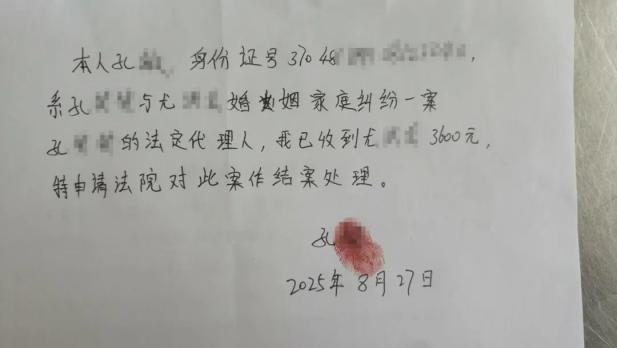 本人孔 身份证号 37048
系孔 与尤 婚姻家庭纠纷一案
孔 的法定代理人，我已收到尤 3600元，
特申请法院对此案作结案处理。
孔
2025年8月27日